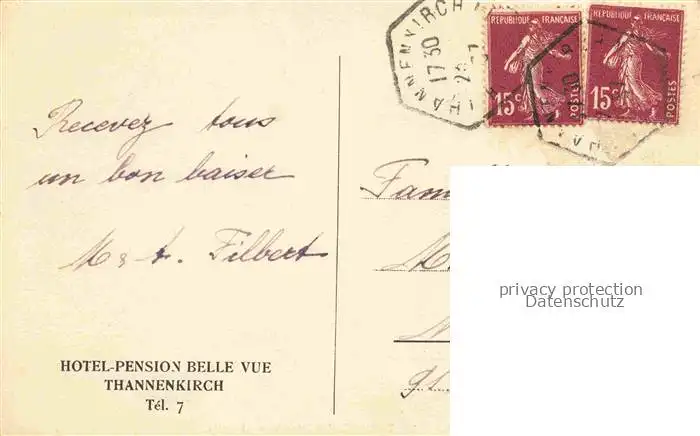 THANNENKIRCH
17 30
RÉPUBLIQUE FRANÇAISE
15c
POSTES
RÉPUBLIQUE FRANÇAISE
15c
POSTES
Recevez tous
un bon baiser
M & A. Filbert
HOTEL-PENSION BELLE VUE
THANNENKIRCH
Tél. 7
privacy protection
Datenschutz